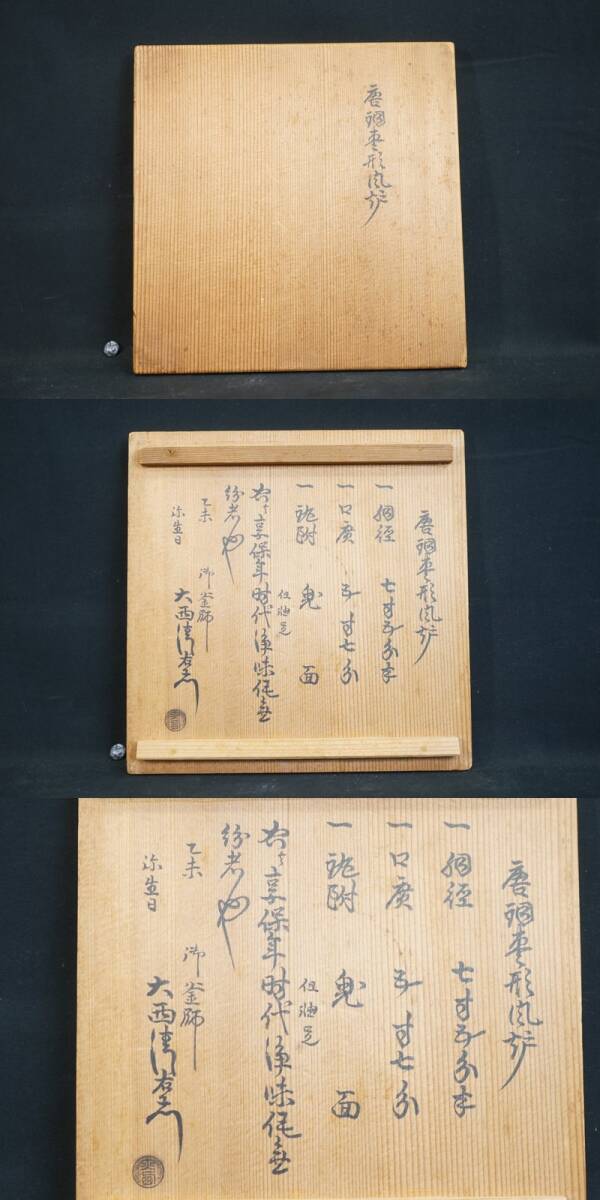 唐銅棗形風炉
唐銅棗形風炉
一 胴径 七寸五分半
一 口廣 五寸七分
一 鐶附 鬼面
但
右ハ享保年時代浄味作無
紛者也
乙未 御釜師
弥生日 大西清右衛門
唐銅棗形風炉
一 胴径 七寸五分半
一 口廣 五寸七分
一 鐶附 鬼面
但
右ハ享保年時代浄味作無
紛者也
乙未 御釜師
弥生日 大西清右衛門